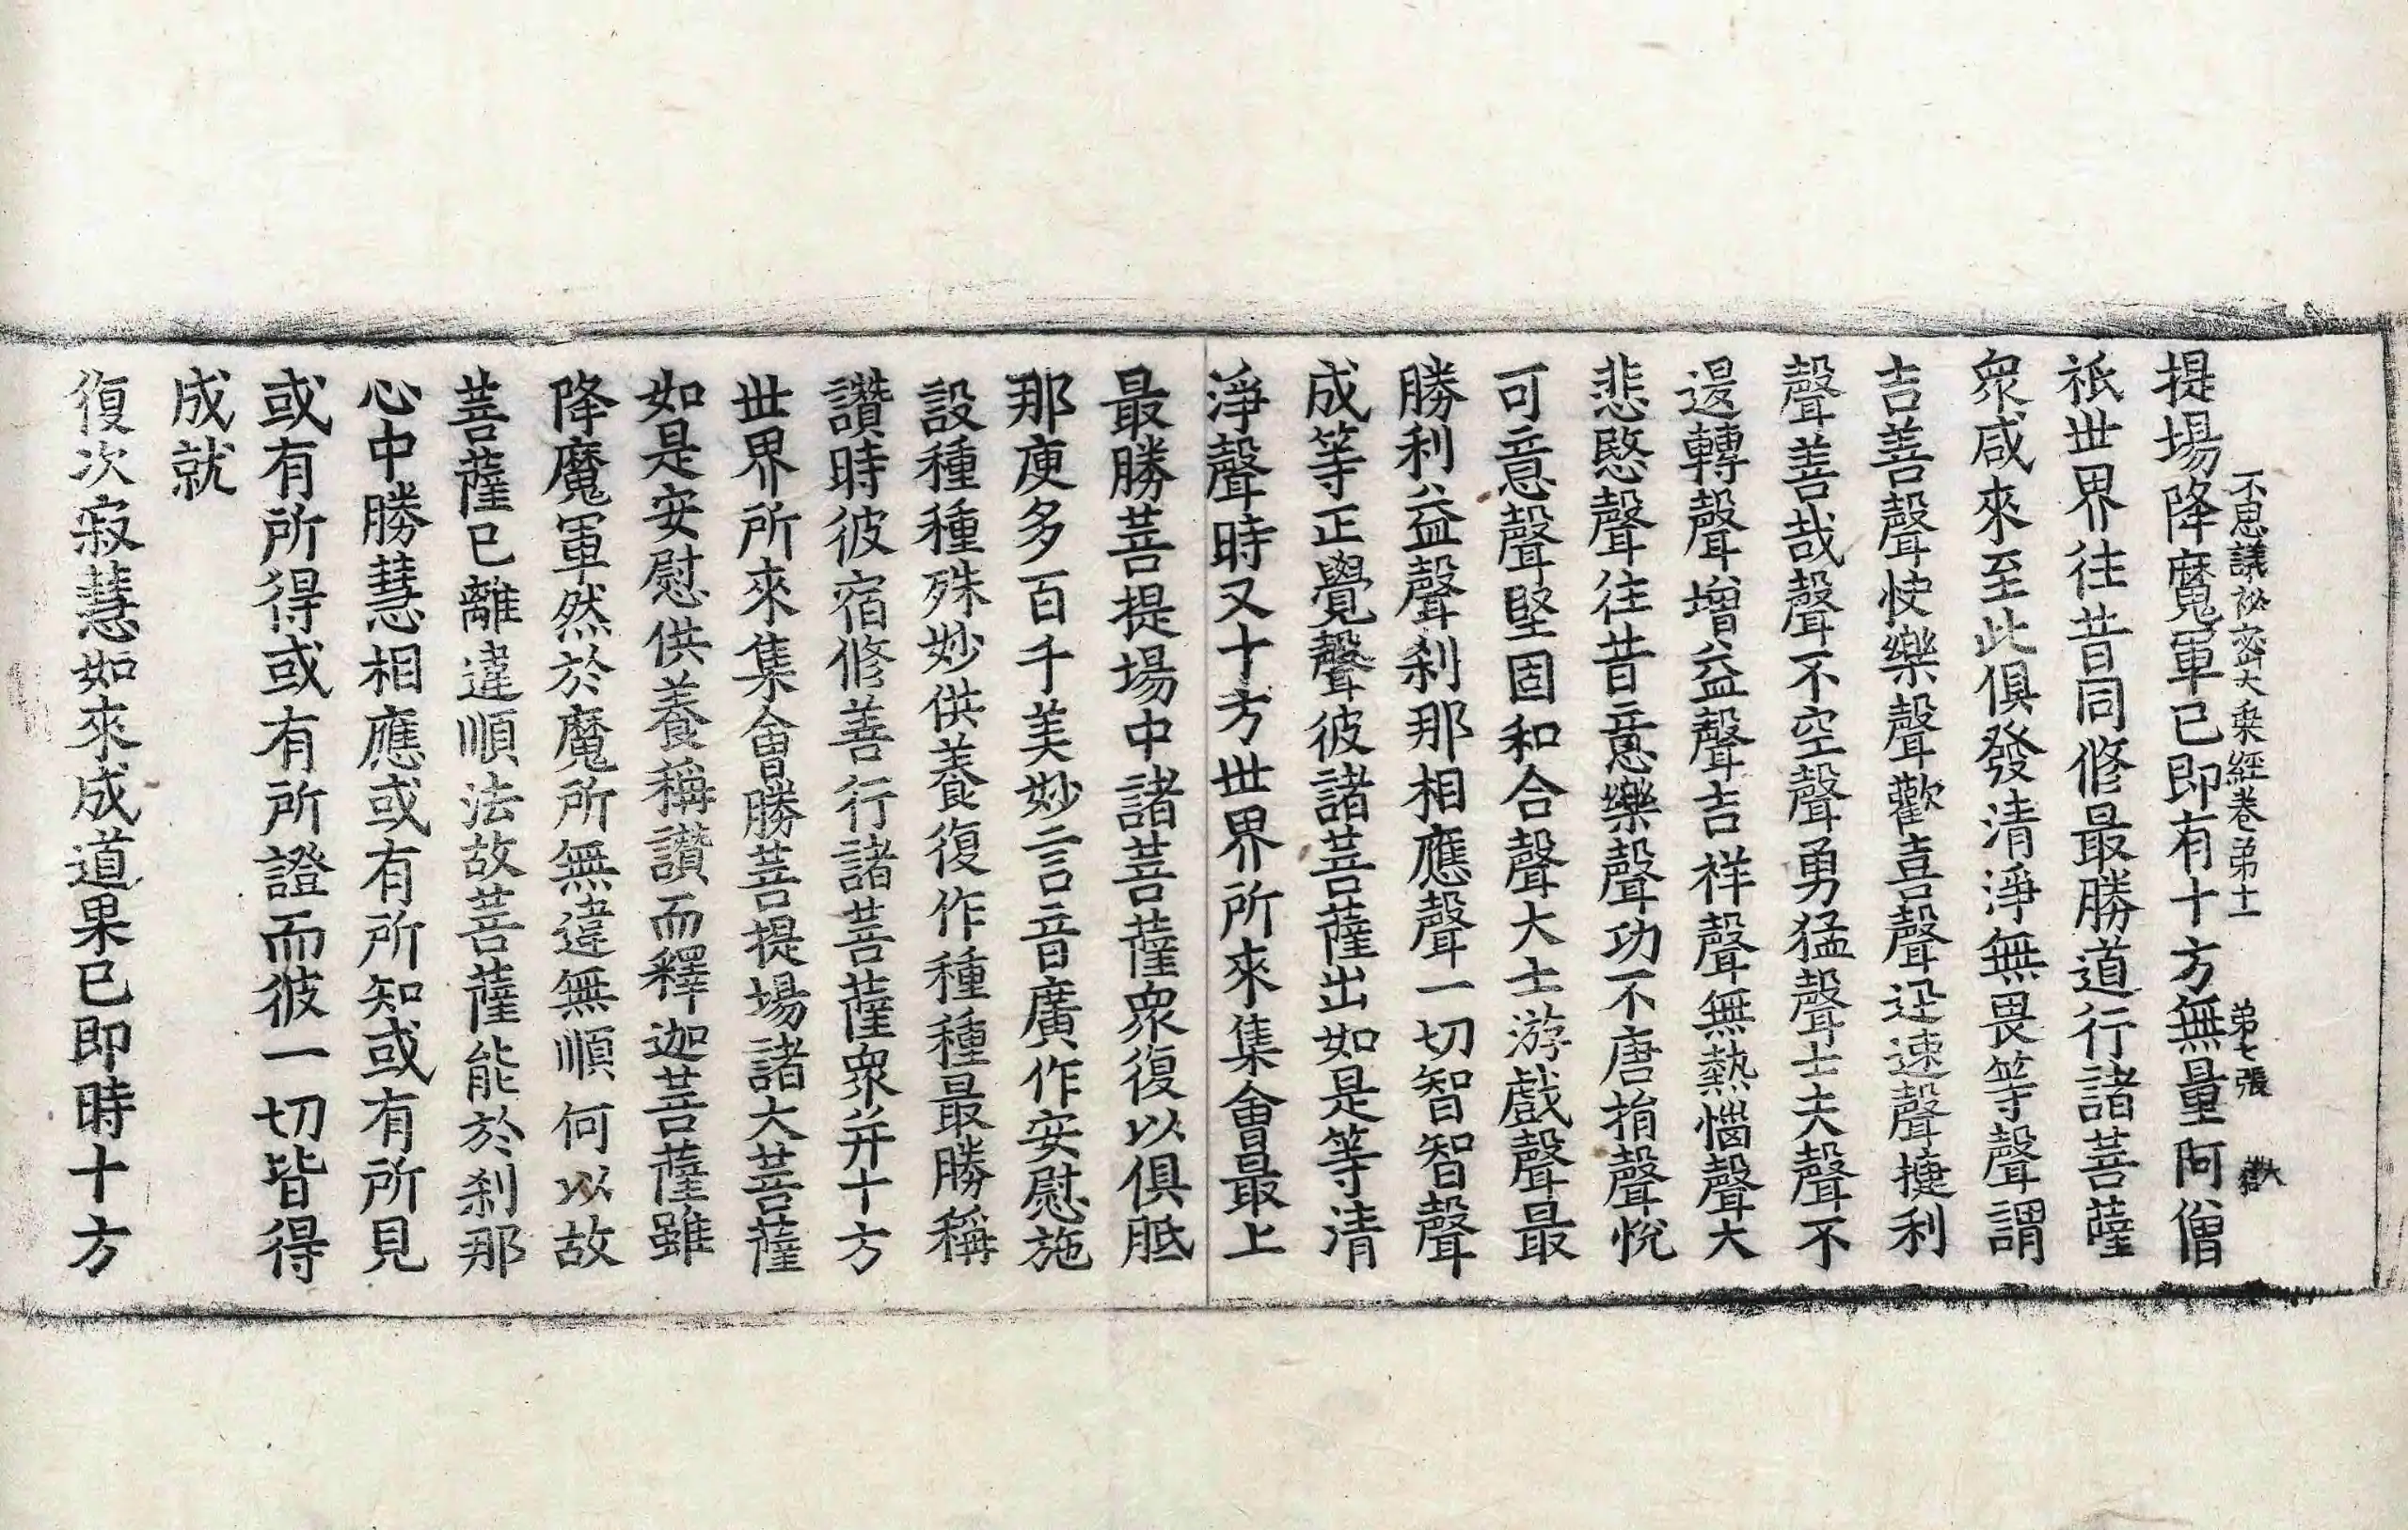 不思議祕密大乗經卷第十一 第七張
提場降魔軍已即有十方無量阿僧
祇世界往昔同修最勝道行諸菩薩
衆咸來至此俱發清淨無畏等聲謂
吉善聲快樂聲歡喜聲迅速聲捷利
聲善哉聲不空聲勇猛聲士夫聲不
退轉聲增益聲吉祥聲無熱惱聲大
悲愍聲往昔意樂聲功不唐捐聲悅
可意聲堅固和合聲大士游戲聲最
勝利益聲刹那相應聲一切智智聲
成等正覺聲彼諸菩薩出如是等清
淨聲時又十方世界所來集會最上
最勝菩提場中諸菩薩衆復以俱胝
那庾多百千美妙言音廣作安慰施
設種種殊妙供養復作種種最勝稱
讚時彼宿修善行諸菩薩衆并十方
世界所來集會勝菩提場諸大菩薩
如是安慰供養稱讚而釋迦菩薩雖
降魔軍然於魔所無違無順何以故
菩薩已離違順法故菩薩能於刹那
心中勝慧相應或有所知或有所見
或有所得或有所證而彼一切皆得
成就
復次寂慧如來成道果已即時十方